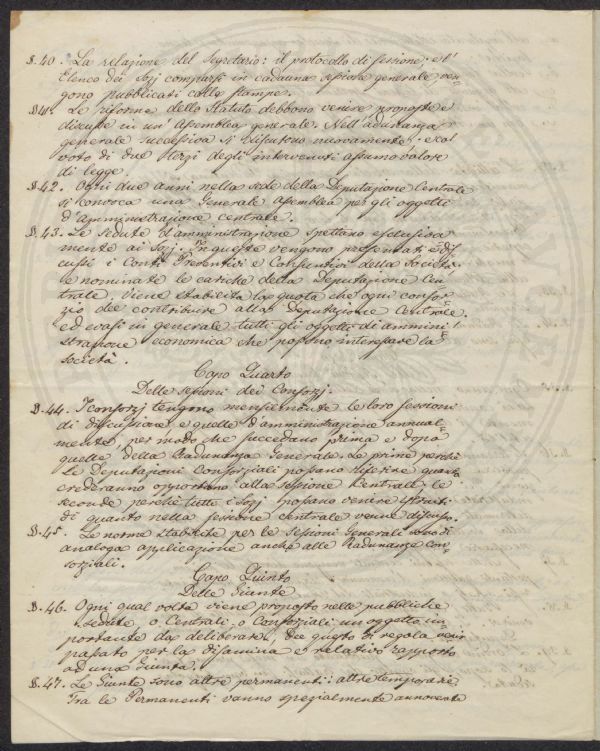 §.40. La relazione del Segretario: il protocollo di sessione; e l'
Elenco dei Sozj comparsi in cadauna sessione generale ven=
gono pubblicati colle stampe.
§41. Le riforme dello Statuto debbono venire proposte e
discusse in un' Assemblea generale. Nell'adunanza
generale successiva si discutono nuovamente; e col
voto di due terzi degli intervenuti assumo valore
di legge.
§.42. Ogni due anni nella sede della Deputazione Centrale
si convoca una Generale Assemblea per gli oggetti
d'amministrazione centrale.
§.43. Le sedute d'amministrazione spettano esclusiva
mente ai Sozj. In queste vengono presentati e dis
cussi i Conti Preventivi e Consuntivi della Società.
e nominate le cariche della Deputazione Cen
trale, viene stabilita la quota che ogni consor=
zio dee contribuire alla Deputazione Centrale.
ed evasi in generale tutti gli oggetti di ammini
strazione economica che possono interessare la
società.
Capo Quarto
Delle sessioni dei Consorzj.
§.44. I consorzj tengono mensilmente le loro sessioni
di discussione e quelle d'amministrazione annual=
mente, per modo che succedano prima e dopo
quelle della Radunanza Generale. Le prime perchè
le Deputazioni Consorziali possano riferire quanto
crederanno opportuno alla sessione Centrale, le
seconde perchè tutti i Sozj possano venire istruiti
di quanto nella sessione Centrale venne discusso.
§.45. Le norme stabilite per le Sessioni Generali sono di
analoga applicazione anche alle Radunanze con
sorziali.
Capo Quinto
Delle Giunte
§.46. Ogni qual volta viene proposto nelle pubbliche
sedute, o Centrali, o Consorziali un oggetto im
portante da deliberare, dee questo di regola venir
passato per la disamina e relativo rapporto
ad una Giunta.
§.47. Le Giunte sono altre permanenti: altre temporarie
Tra le Permanenti vanno spezialmente annoverate